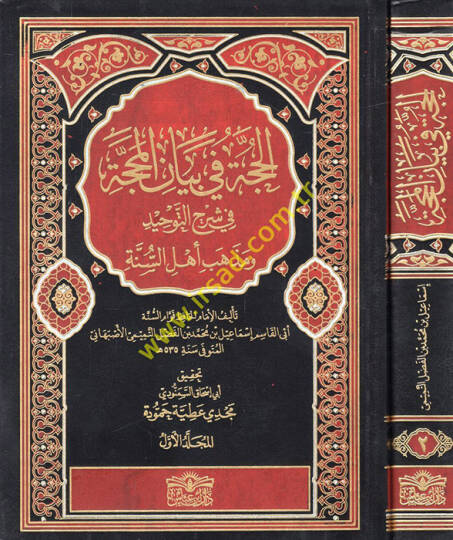 الحجة في بيان المحجة
في شرح التوحيد
ومذهب أهل السنة
تأليف الإمام الحافظ قوام السنة
أبي القاسم إسماعيل بن محمد بن الفضل التيمي الأصبهاني
المتوفى سنة ٥٣٥ هـ
تحقيق
أبي إسحاق السمنودي
مجدي عطية حمودة
المجلد الأول
دار ابن عباس
www.irsad.com.tr
الحجة في بيان المحجة
إسماعيل بن محمد بن الفضل التيمي
٢
دار ابن عباس